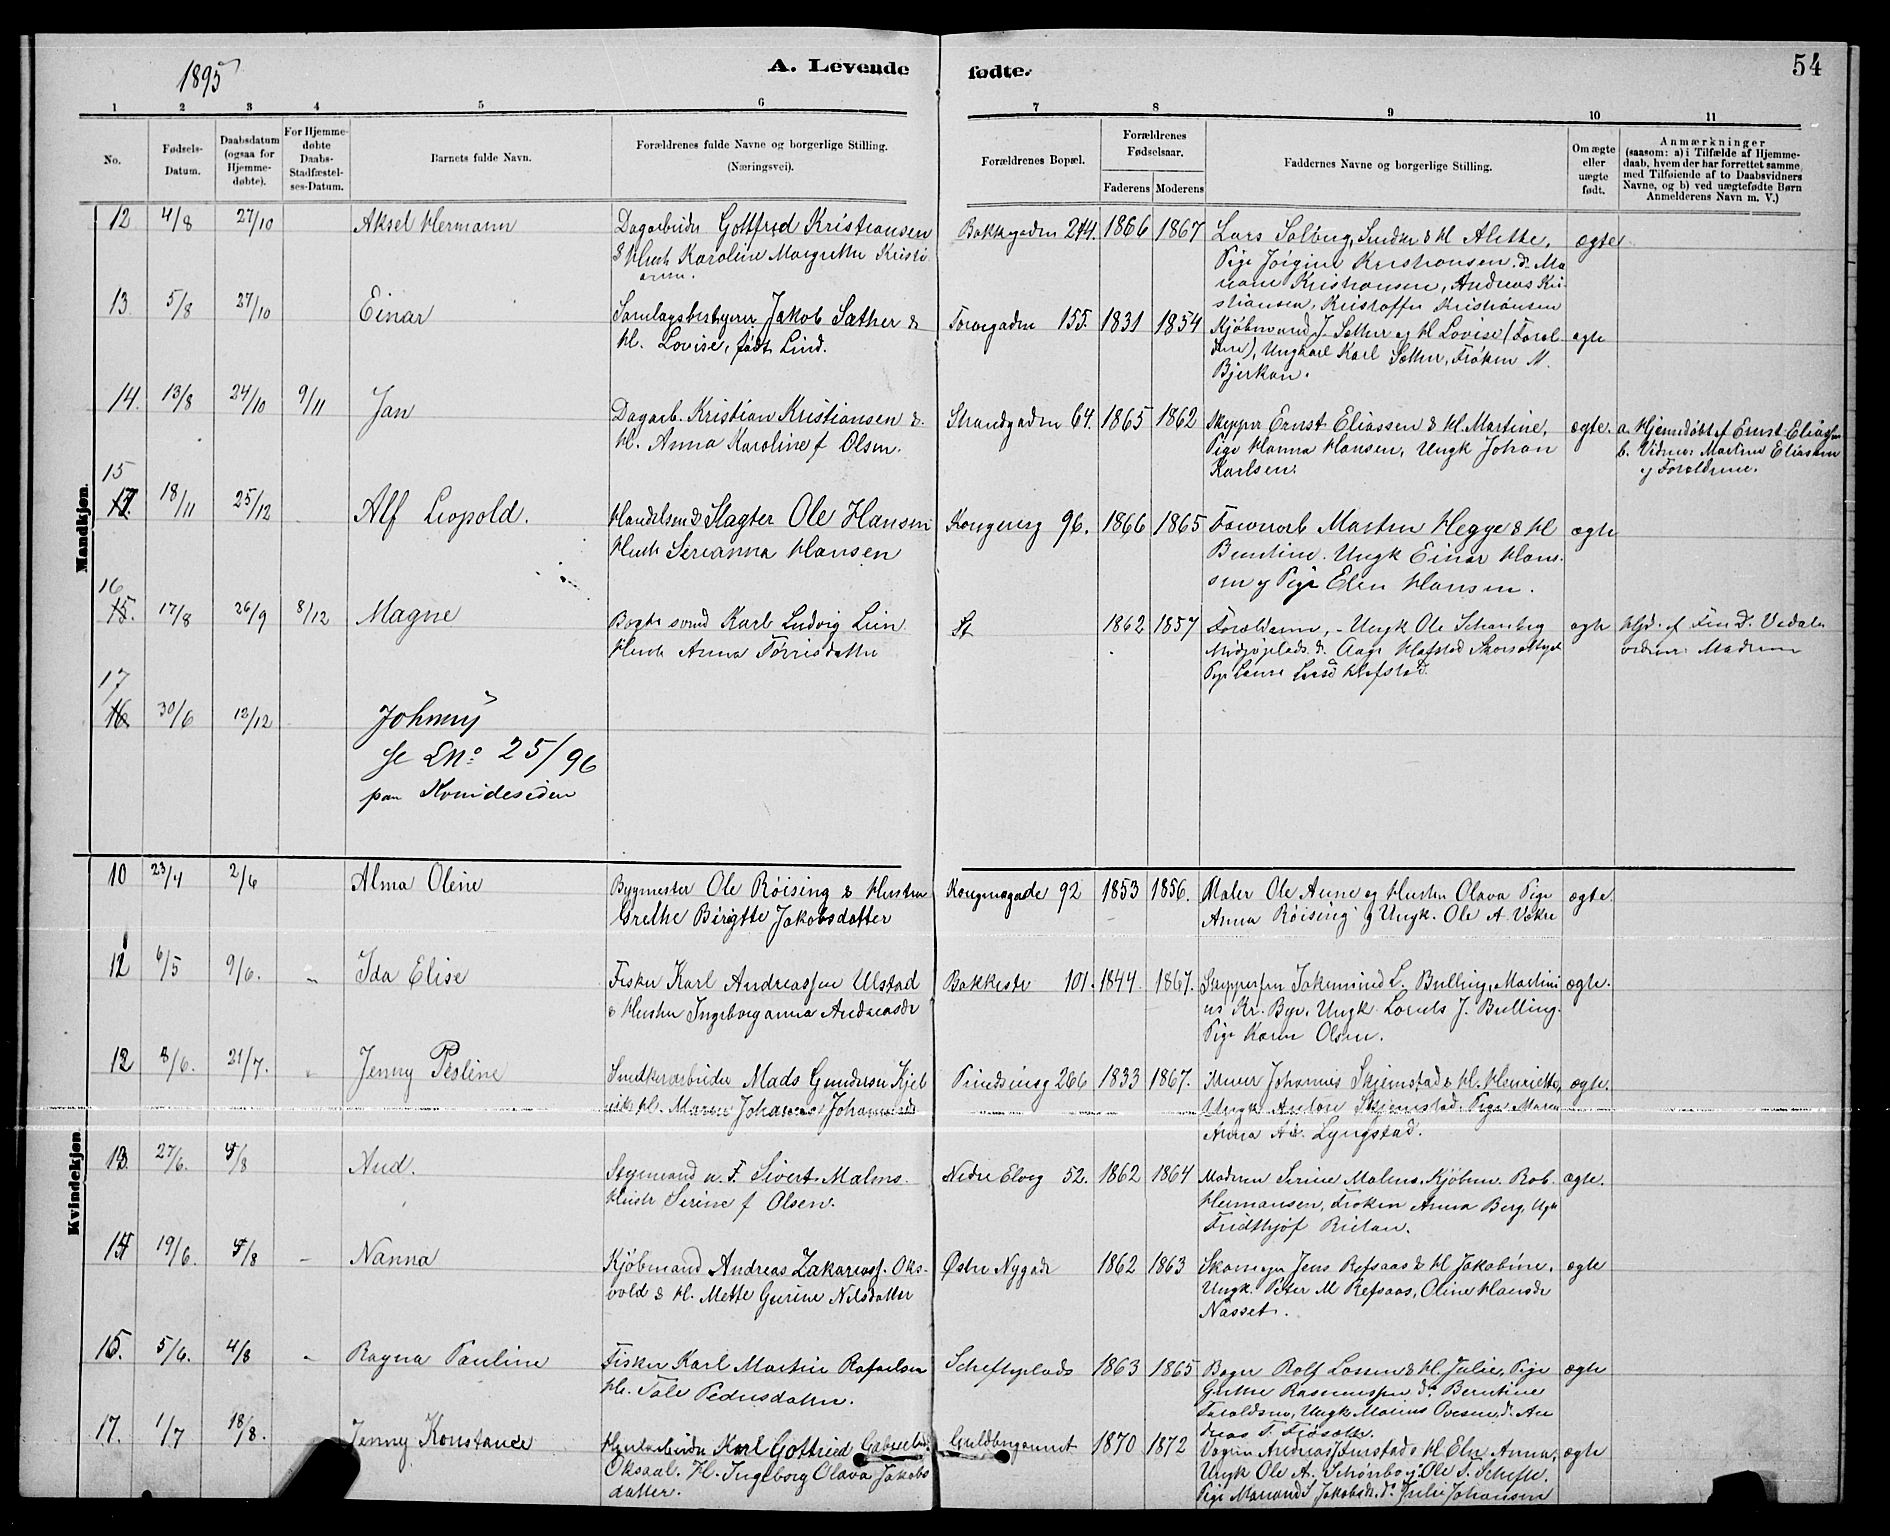 1895
A. Levende fødte.
54
1 2 3 4 5 6 7 8 9 10 11
No.
Fødsels-Datum.
Daabsdatum (ogsaa for Hjemme-døbte).
For Hjemme-døbte Daabs-Stadfæstel-ses-Datum.
Barnets fulde Navn.
Forældrenes fulde Navne og borgerlige Stilling.
(Næringsvei).
Forældrenes Bopæl.
Forældrenes Fødselsaar.
Faderens Moderens
Faddernes Navne og borgerlige Stilling.
Om ægte eller uægte født.
Anmærkninger
(saasom: a) i Tilfælde af Hjemme-
daab, hvem der har forrettet samme,
med Tilføiende af to Daabsvidners
Navne, og b) ved uægtefødte Børn
Anmelderens Navn m. V.)
Mandkjøn.
12 4/8 27/10 Aksel Hermann
Gottfred Kristiansen
& Hust Karoline Margrethe Kristi
ansen.
Bakkgaden 244. 1866 1867
Lars Solberg, Snedker & H Alette,
Pige Jørgine Kristiansen, do Ma
Kristiansen, Andreas Kri-
stiansen, Kristoffer Kristiansen
ægte
13 5/8 27/10 Einar
Samlagsbestyrer Jakob Sæther &
H. Lovise, født Lind.
Torvegaden 155. 1831 1854
Kjøbmand J. Sæther og H Lovise (Foræl-
drene), Ungkarl Karl Sæther, Frøken M.
Bjerkan.
ægte
14. 13/8 24/10 9/11 Jan
Dagarb. Kristian Kristiansen &
H. Anna Karoline f Olsen.
Strandgaden 64. 1865 1862
Skipper Ernst Eliassen & H Martine,
Pige Hanna Hansen, Ungk Johan
Karlsen.
ægte.
a. Hjemdøbt af Ernst Eliassen
b. Vidner: Martine Eliassen
og Forældrene.
15 18/11 25/12 Alf Leopold.
Handelsm & Slagter Ole Hansen
Hust Serianna Hansen
Kongensg 96. 1866 1865
Martin Hegge & H
Berntine. Ungk Einar Han-
sen og Pige Elen Hansen.
ægte
16
15. 17/8 26/9 8/12 Magne
Karl Ludvig Lien
Hust Anna Torrisdatter
St 1862 1857
Forældrene, Ungk Ole Schønberg
Aage Hafstad
Pige Hafstad.
ægte
17
16 30/6 12/12 Johnny
se LNo 25/96
paa Kvindesiden
Kvindekjøn.
10 23/4 2/6 Alma Oline
Bygmester Ole Røising & Hustru
Grethe Birgitte Jakobsdatter
Kongensgade 92 1853 1856.
Maler Ole Aune og Hustru Olava Pige
Anna Røising og Ungk. Ole A.
ægte.
12 6/5 9/6. Ida Elise
Fisker Karl Andreassen Ulstad
& Hustru Ingeborganna Andreasdr
Bakkestr 101. 1844 1867.
Skipperfru Jakumina L. Bulling, Martin
us Kr. Bye, Ungk. Lorents J. Bulling.
Pige Karen Olsen.
ægte.
12 8/6. 21/7. Jenny Petline
Snedkerarbeider Mads Gundersen Kjel
vik H. Maren Johanna Johannesd
Prindsensg 266 1833 1867.
Johannes Skjemstad & H. Henriette,
Ungk Anton Skjemstad. Pige Maren
Anna Lyngstad.
ægte.
13. 27/6. 4/8 Aud.
Styrmand u. F. Sivert Malmo.
Hustr Serine f Olsen.
Nedre Elveg 52. 1862 1864
Moderen Serine Malmo, Kjøbm. Rob.
Hermansen, Frøken Anna Berg, Ugk
Fridthjof Brietan.
ægte.
14 19/6. 4/8 Nanna
Kjøbmand Andreas Zakariass. Oks-
vold & H. Mette Gurine Nilsdatter
Østre Nygade 1862 1863
Skomager Jens Refsaas & H Jakobine.
Ungk. Peter M Refsaas, Oline Hansdr
Nasset.
ægte
15. 5/6. 4/8 Ragna Pauline
Fisker Karl Martin Rafaelsen
H. Tale Pedersdatter.
Schefteplads 1863 1865
Bager Rolf Lossen & H. Julie, Pige
Grethe Rasmussen do Berntine
Toraldsen, Ungk Marius Ovesen, do An
dreas T. Fjøsatter
ægte
17. 1/7 18/8. Jenny Konstance
Karl Gottfried Gabrielsen
Oksaal. H. Ingeborg Olava Jakobs
datter.
Guldbergaunet 1870 1872
Vognm Andreas Finstad & H Eln Anna,
Ungk Ole A. Schønberg, Ole T. Schefte.
Pige Marianne Jakobsdr. do Julie Johansen
ægte